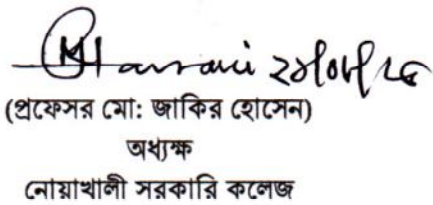 (প্রফেসর মো: জাকির হোসেন)
অধ্যক্ষ
নোয়াখালী সরকারি কলেজ